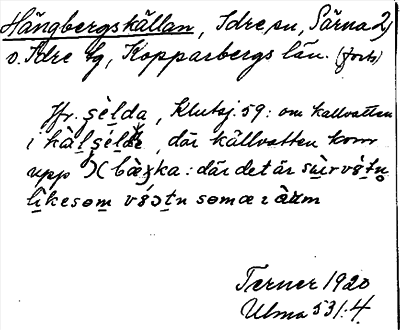 Hängbergskällan, Idre sn, Särna 2)
v. Idre tg, Kopparbergs län. (forts)
Jfr. şèlda, Klutsj. 59: om kallvatten
i kàlşèldɐ, där källvatten kom
upp )( bàkka: där det är sùrvátn̥
lìkesəm vátn səm æ ɪ
Terner 1920
Ulma 531:4.